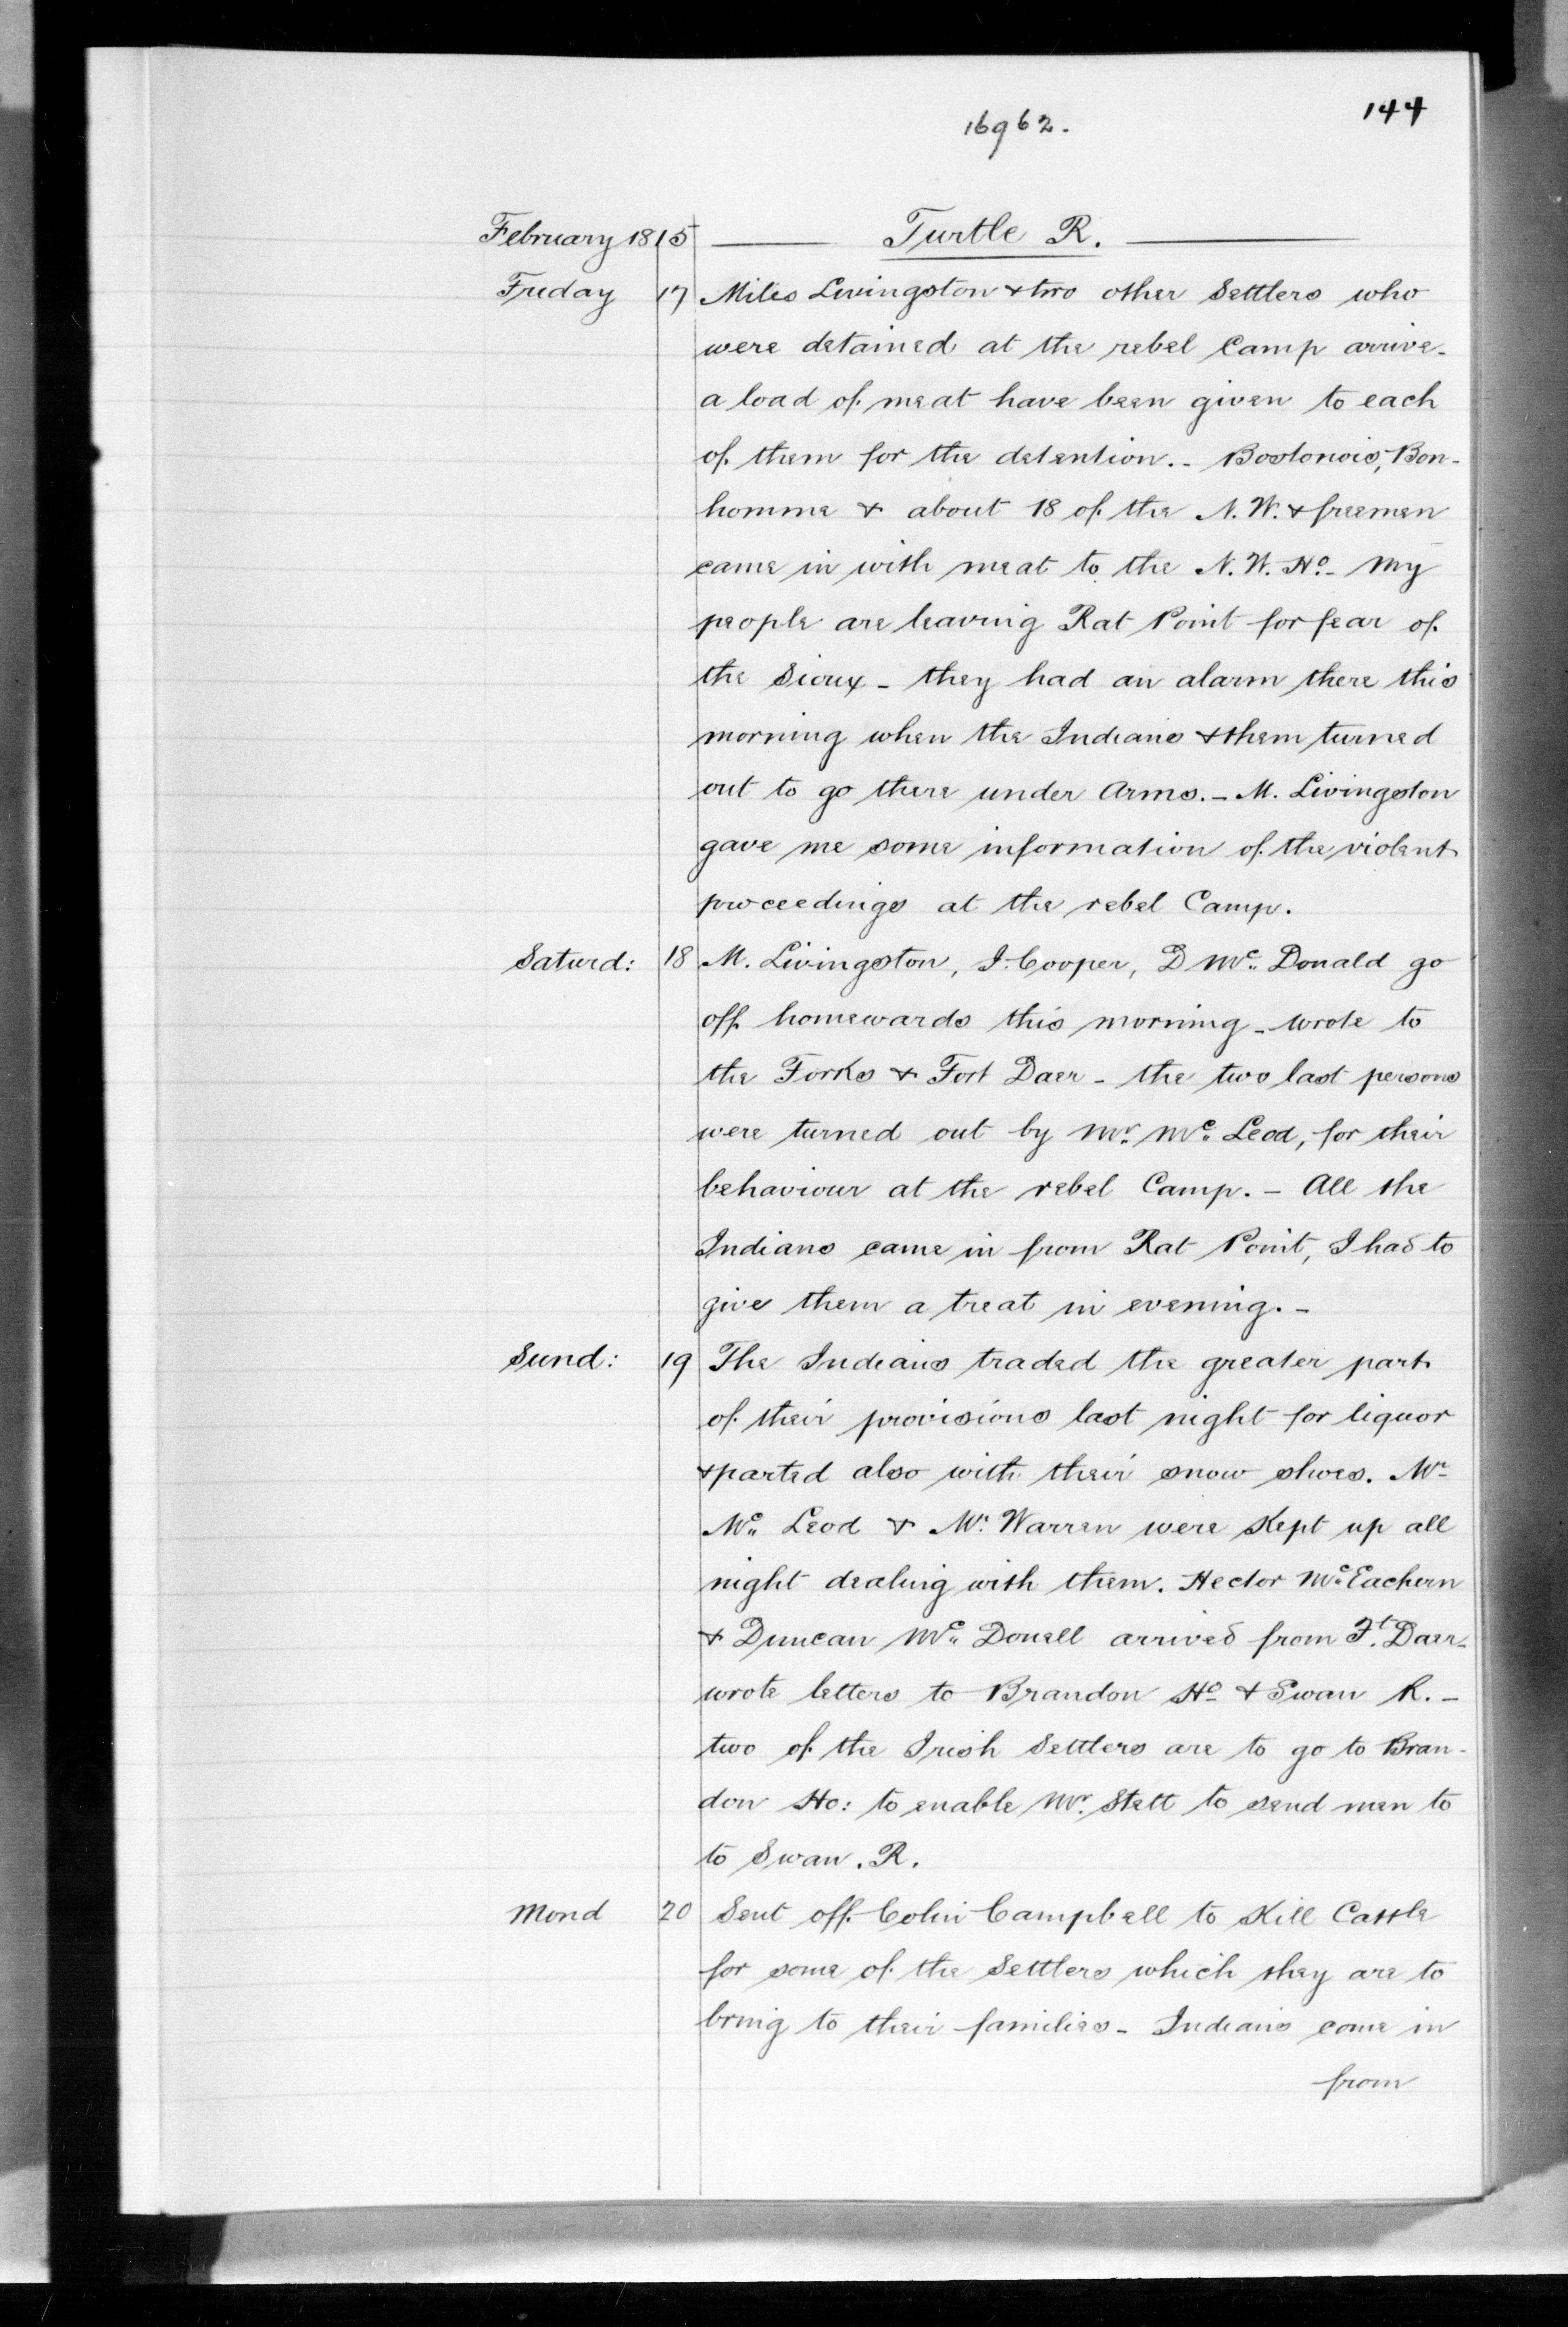 144
16962.
February 1815 Turtle R.
Friday 17 Miles Livingston & two other Settlers who
were detained at the rebel Camp arrive-
a load of meat have been given to each
of them for the detention.- Bostonois, Bon-
homme & about 18 of the N. W. & freemen
came in with meat to the N. W. Ho- My
people are leaving Rat Point for fear of
the Sioux - they had an alarm there this
morning when the Indians & them turned
out to go there under Arms. - M. Livingston
gave me some information of the violent
proceedings at the rebel Camp.
Saturd: 18 M. Livingston, J. Cooper, D Mc. Donald go
off homewards this morning - wrote to
the Forks & Fort Daer - the two last persons
were turned out by Mr. Mc. Leod, for their
behaviour at the rebel Camp. - All the
Indians came in from Rat Point, I had to
give them a treat in evening. -
Sund: 19 The Indians traded the greater part
of their provisions last night for liquor
& parted also with their snow shoes. Mr
Mc. Leod & Mr. Warren were Kept up all
night dealing with them. Hector Mc. Eachern
& Duncan Mc. Donell arrived from Ft. Daer-
wrote letters to Brandon Ho & Swan R. -
two of the Irish Settlers are to go to Bran-
don Ho: to enable Mr. Stett to send men to
to Swan. R.
Mond 20 Sent off Colin Campbell to Kill Cattle
for some of the Settlers which they are to
bring to their families - Indians come in
from